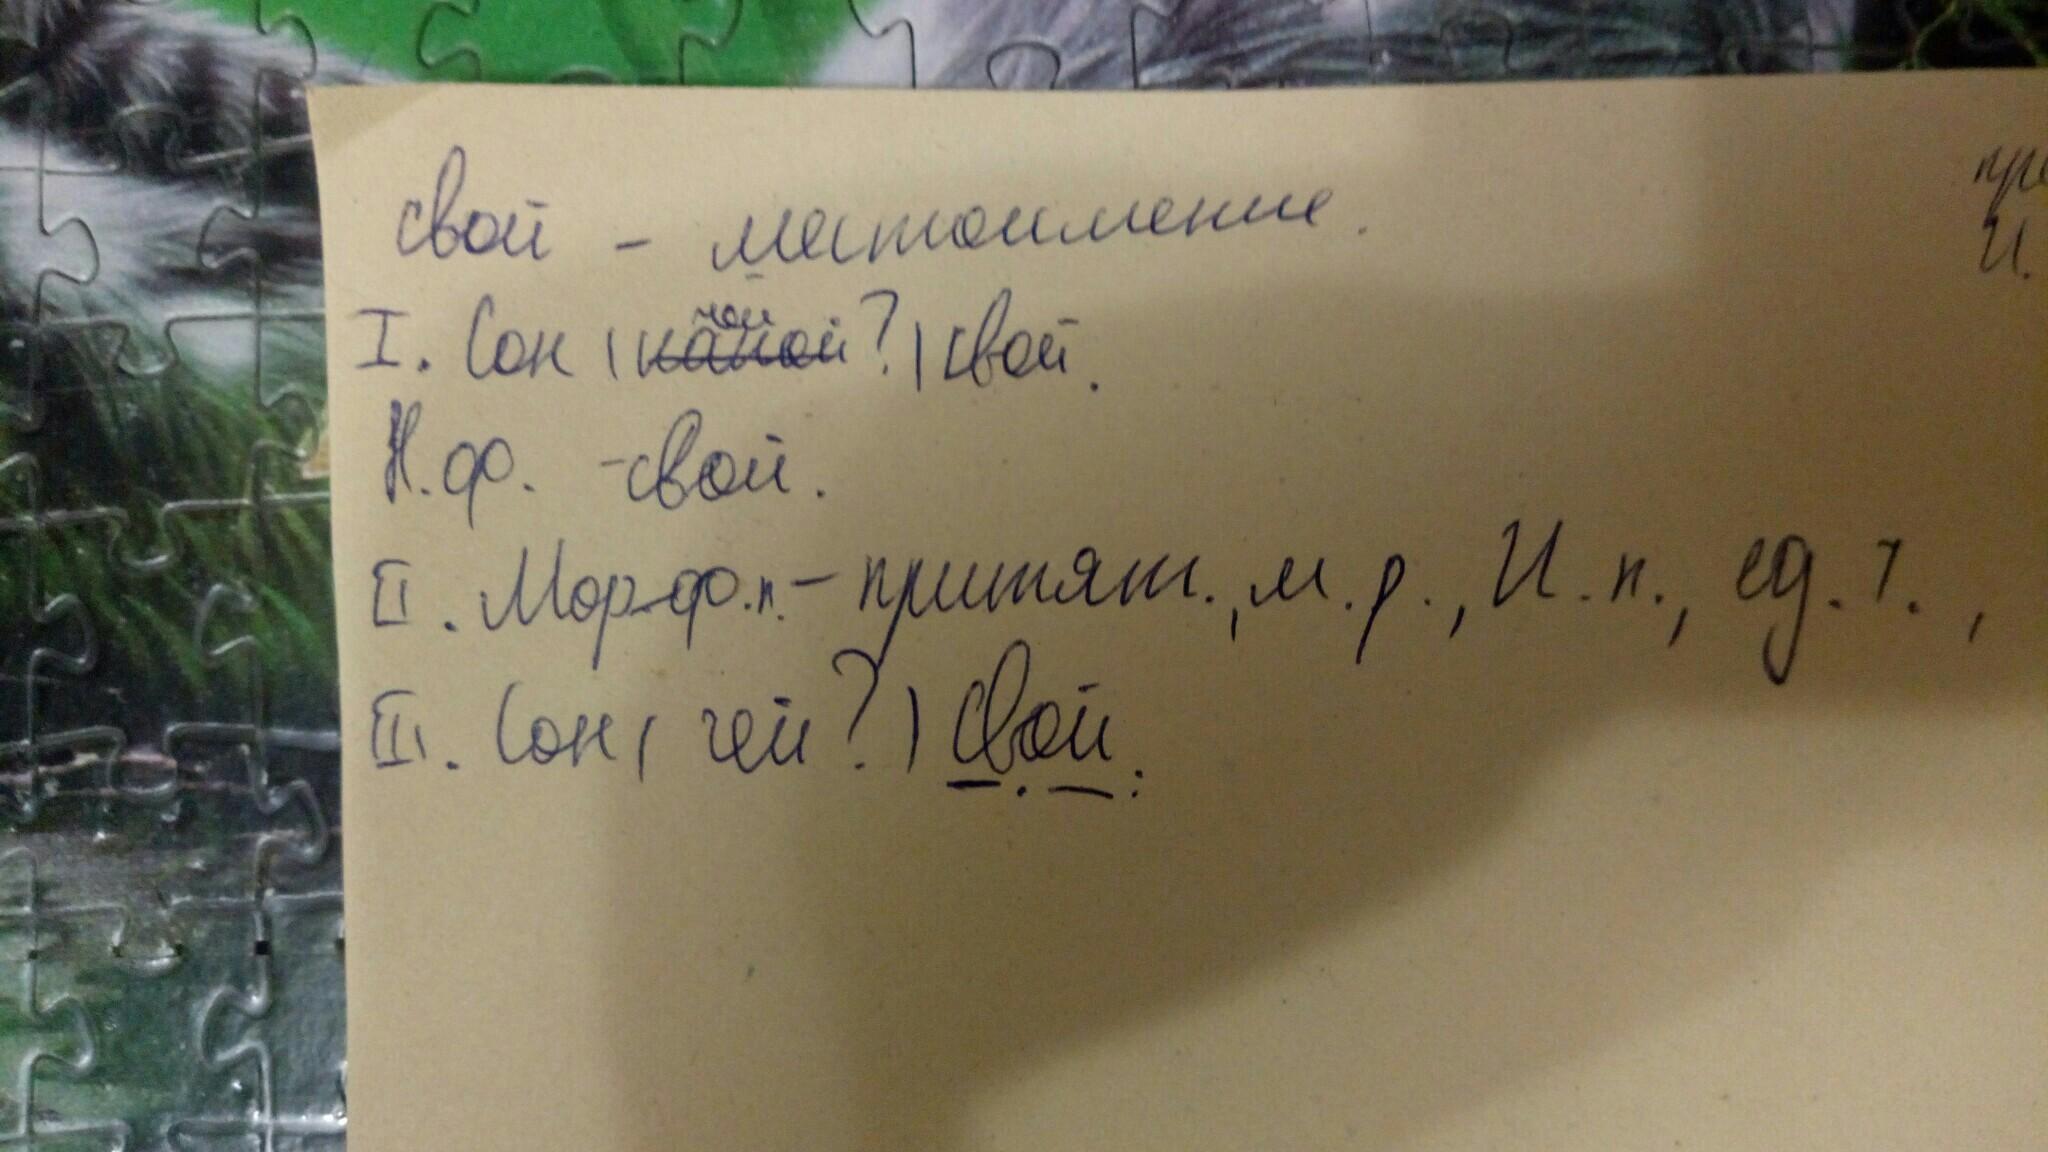 свой - местоимение.
I. Сон (чей?) свой.
Н.ф. - свой.
II. Морф.п. - притяж., м.р., И.п., ед.ч.,
III. Сон (чей?) свой.
И.